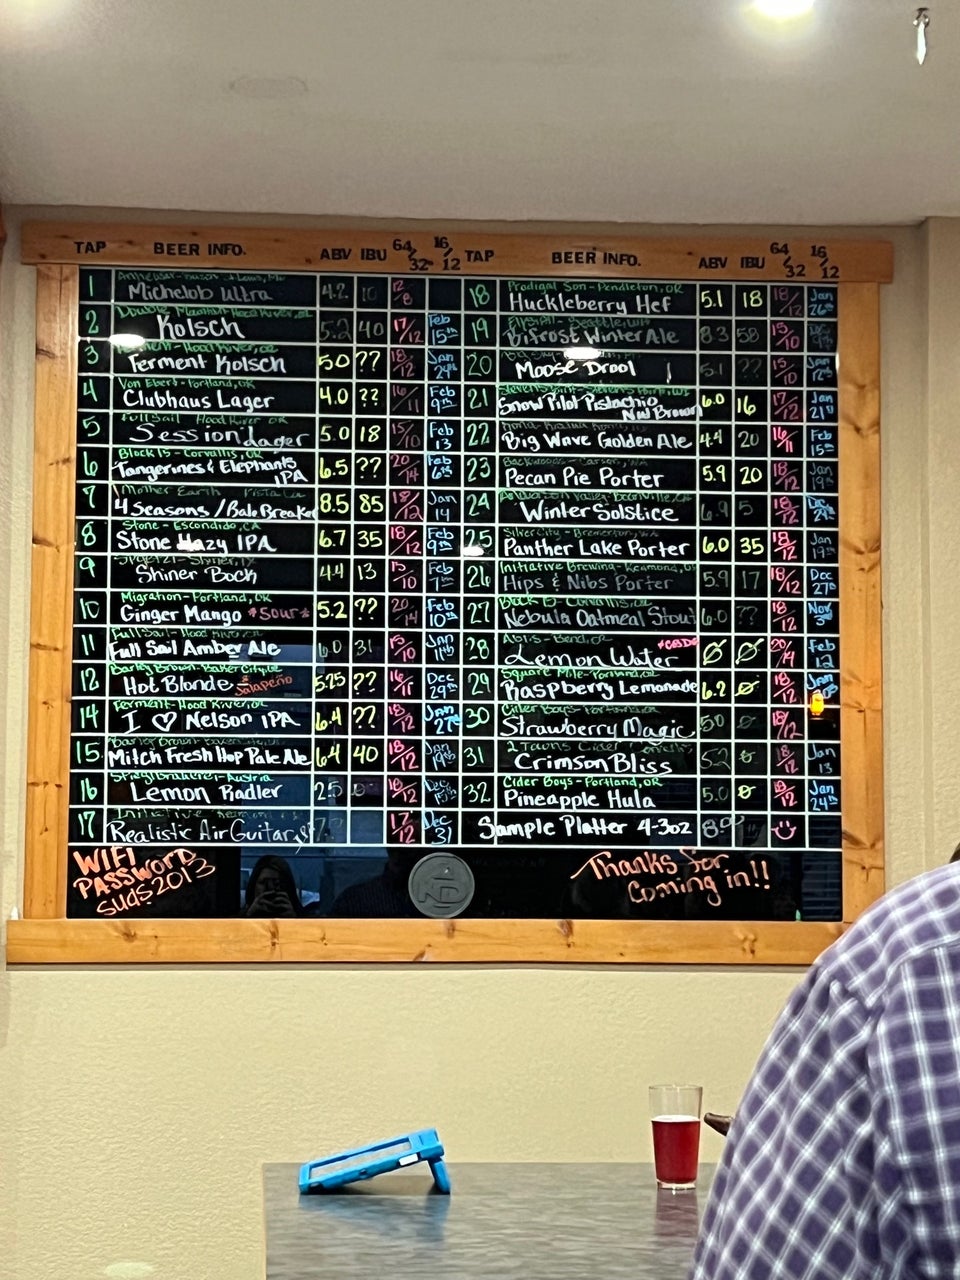 TAP BEER INFO. ABV IBU 64/32 16/12 TAP BEER INFO. ABV IBU 64/32 16/12
1 Michelob Ultra 4.2 10 12/8
2 Kolsch 5.2 40 17/12 Feb 15th
3 Ferment - Hood River, OR
Ferment Kolsch 5.0 ?? 18/12 Jan 24th
4 Von Ebert - Portland, OR
Clubhaus Lager 4.0 ?? 16/11 Feb 9th
5 Full Sail Hood River OR
Session Lager 5.0 18 15/10 Feb 13
6 Block 15 - Corvallis, OR
Tangerines & Elephants IPA 6.5 ?? 20/14 Feb 6th
7 Mother Earth Vista Ca
4 Seasons / Balo Breaker 8.5 85 18/12 Jan 14
8 Stone - Escondido, CA
Stone Hazy IPA 6.7 35 18/12 Feb 9th
9 Shiner Bock 4.4 13 15/10 Feb
10 Migration - Portland, OR
Ginger Mango *Sour* 5.2 ?? 20/14 Feb 10th
11 Full Sail - Hood River, OR
Full Sail Amber Ale 6.0 31 15/10 Jan 11th
12 Barley Brown - Baker City, OR
Hot Blonde Jalapeño 5.25 ?? 16/11 Dec 29th
14 Ferment - Hood River, OR
I ♡ Nelson IPA 6.4 ?? 18/12 Jan 27th
15 Mitch Fresh Hop Pale Ale 6.4 40 18/12 Jan 19th
16 Stiegl Brauerei - Austria
Lemon Radler 2.5 18/12 Dec
17 Initiative
Realistic Air Guitar 17/12 Dec 31
18 Prodigal Son - Pendleton, OR
Huckleberry Hef 5.1 18 18/12 Jan 26th
19 Elysian - Seattle, WA
Bifrost Winter Ale 8.3 58 15/10
20 Moose Drool 5.1 ?? 15/10 Jan 12th
21 Stevens Point - Stevens Point, WI
Snow Pilot Pistachio Nut Brown 6.0 16 17/12 Jan 21st
22 Big Wave Golden Ale 4.4 20 16/11 Feb 15th
23 Backwoods - Carson, WA
Pecan Pie Porter 5.9 20 18/12 Jan 19th
24 Anderson Valley - Boonville, CA
Winter Solstice 6.9 5 18/12 Dec 29
25 Silver City - Bremerton, WA
Panther Lake Porter 6.0 35 18/12 Jan 19th
26 Initiative Brewing - Redmond, OR
Hips & Nibs Porter 5.9 17 18/12 Dec 27th
27 Block 15 - Corvallis, OR
Nebula Oatmeal Stout 6.0 ?? 18/12 Nov 3rd
28 Bend, OR
Lemon Water *CBD* Ø Ø 20/14 Feb 12
29 Square Mile - Portland, OR
Raspberry Lemonade 6.2 Ø 18/12 Jan
30 Cider Boys - Portland, OR
Strawberry Magic 5.0 Ø 18/12
31 2 Towns Cider Corvallis
Crimson Bliss 5.2 Ø 18/12 Jan 13
32 Cider Boys - Portland, OR
Pineapple Hula 5.0 Ø 18/12 Jan 24th
Sample Platter 4-3oz 8.00
WIFI
PASSWORD
suds2013
Thanks for
Coming in!!